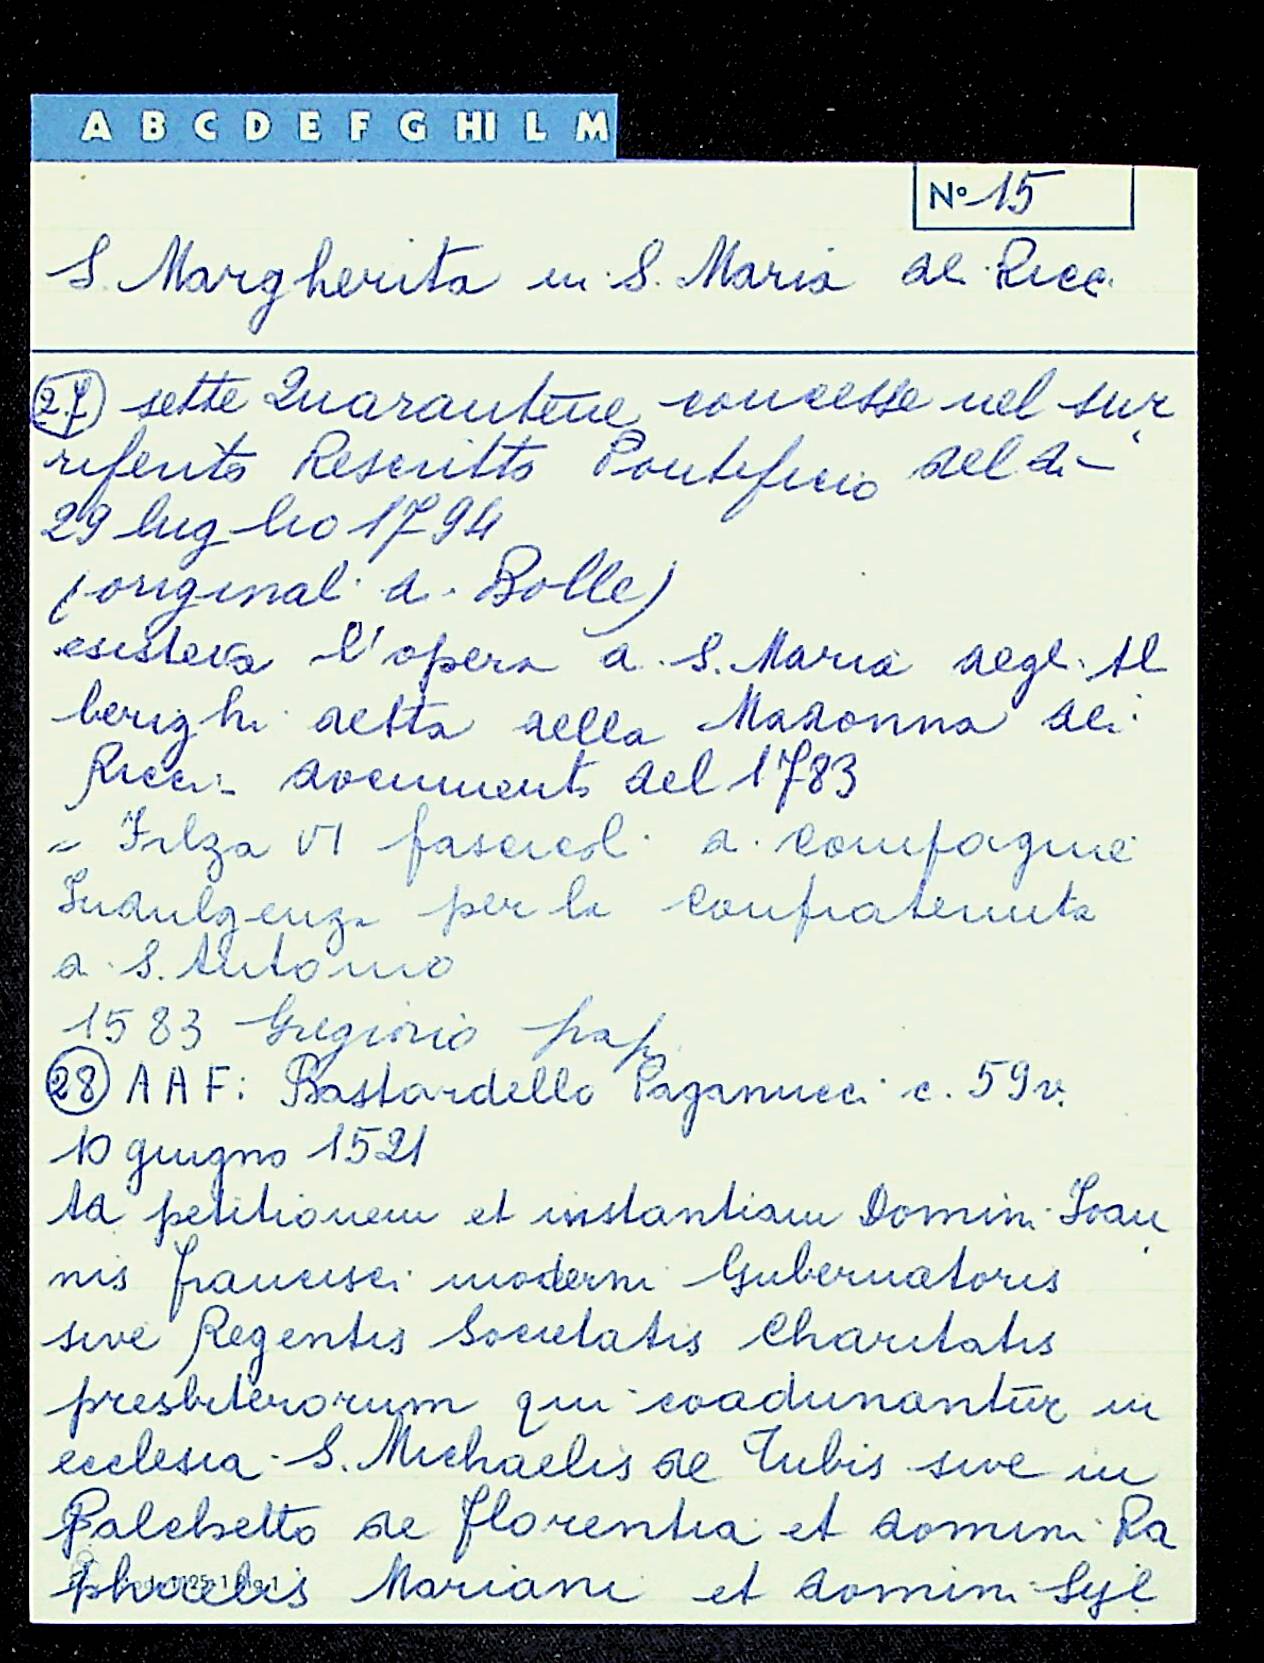 A B C D E F G HI L M
N° 15
S. Margherita in S. Maria de Ricc.
27 sette Quarantene concesse nel sur
riferito Rescritto Pontificio del di
29 luglio 1794
(original di Bolle)
esisteva l'opera di S. Maria degli Al
berighi detta della Madonna dei
Ricci - documento del 1783
= Filza VI fascicoli di compagnie
Indulgenza per la confraternita
di S. Antonio
1583 Gregorio pap.
28 AAF: Bastardello Paganucci c. 59v.
10 giugno 1521
Ad petitionem et instantiam Domini Joan
nis francisci moderni Gubernatoris
sive Regentis Societatis Charitatis
presbiterorum qui coadunantur in
ecclesia S. Michaelis de Tubis sive in
Palchetto de florentia et domini Ra
phaelis Mariani et domini Syl